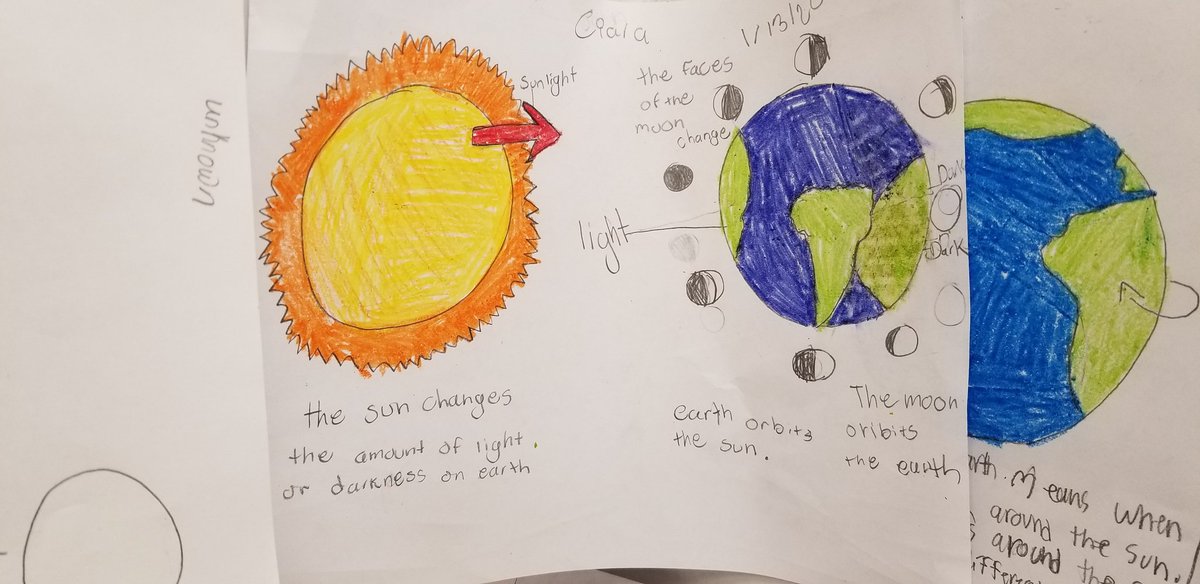 unknown
Ciara 1/13/20
Sunlight
the Faces
of the
moon
change
light
Dark
Dark
the sun changes
the amount of light.
or darkness on earth
earth orbits
the sun.
The moon
oribits
the earth
Means when
around the sun.
around